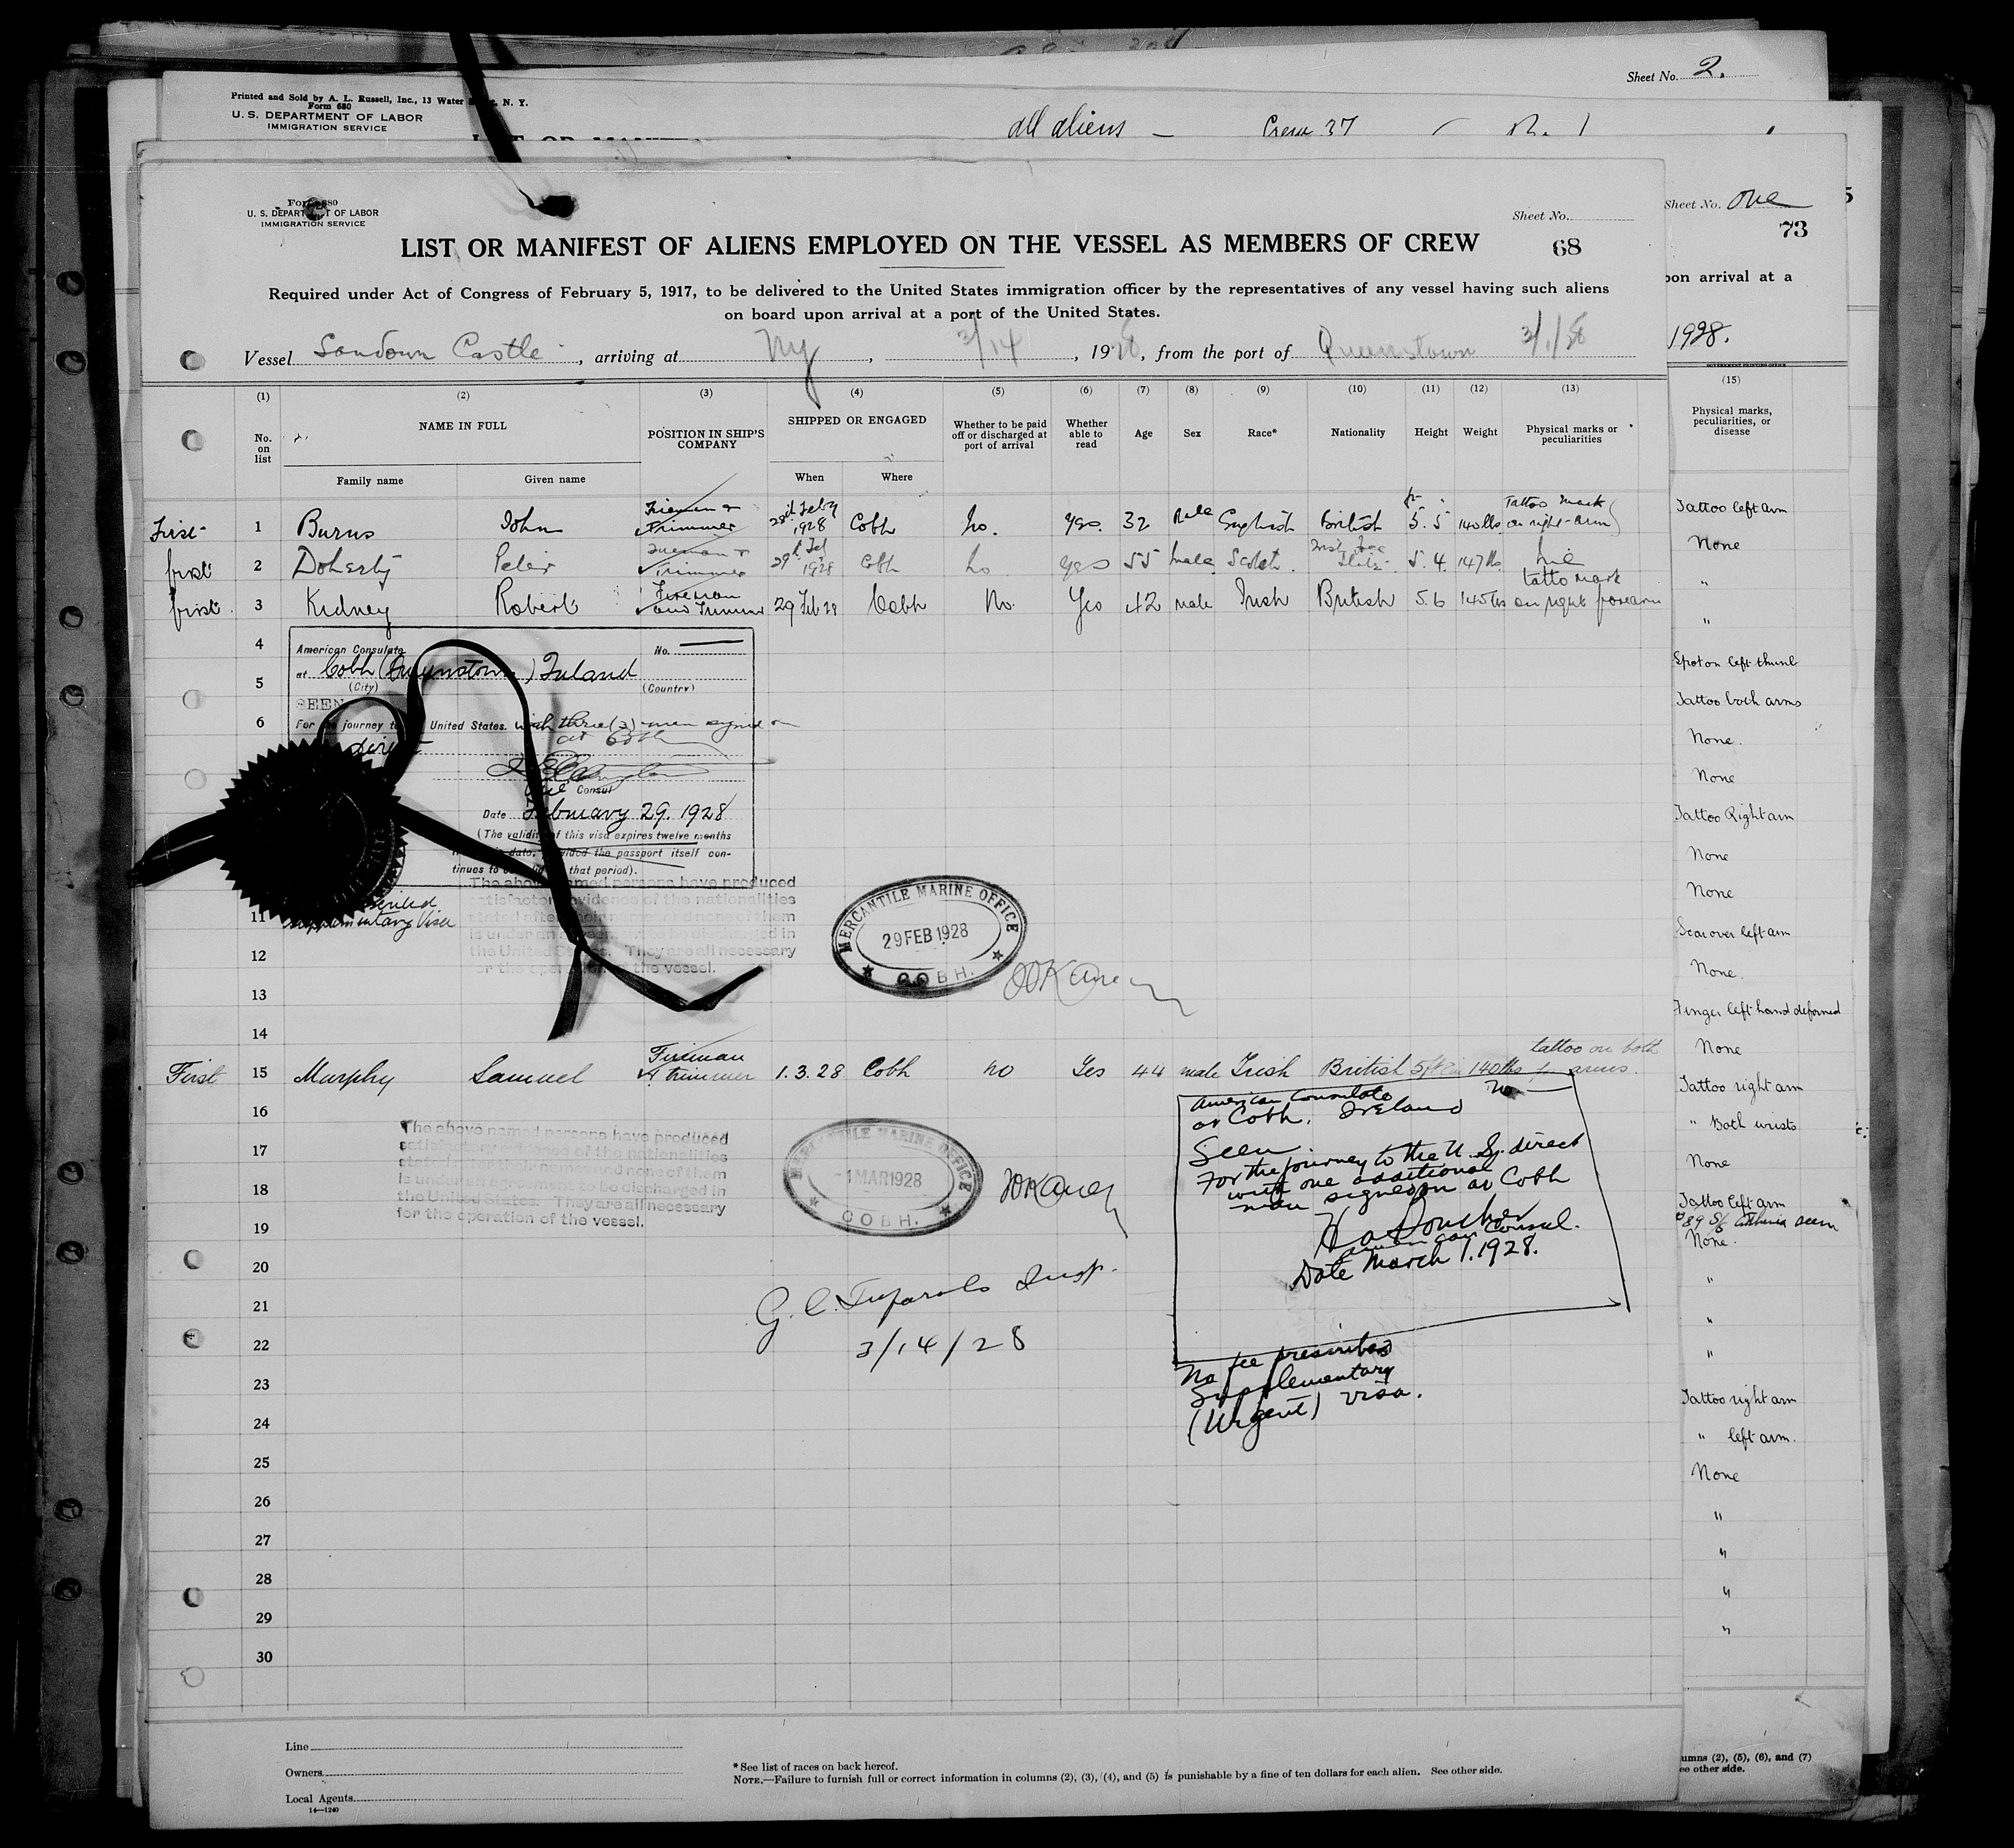 Sheet No. 2.
Printed and Sold by A. L. Russell, Inc., 13 Water N. Y.
Form 680
U. S. DEPARTMENT OF LABOR
IMMIGRATION SERVICE
all aliens — Crew 37
Sheet No. One
73
pon arrival at a
1928.
Form 680
U. S. DEPARTMENT OF LABOR
IMMIGRATION SERVICE
Sheet No.
68
LIST OR MANIFEST OF ALIENS EMPLOYED ON THE VESSEL AS MEMBERS OF CREW
Required under Act of Congress of February 5, 1917, to be delivered to the United States immigration officer by the representatives of any vessel having such aliens
on board upon arrival at a port of the United States.
Vessel Sandown Castle, arriving at Ny, 3/14, 1928, from the port of Queenstown 3/1/28
(1) (2) (3) (4) (5) (6) (7) (8) (9) (10) (11) (12) (13)
No. on list
NAME IN FULL
Family name Given name
POSITION IN SHIP'S COMPANY
SHIPPED OR ENGAGED
When Where
Whether to be paid off or discharged at port of arrival
Whether able to read
Age Sex Race* Nationality Height Weight
Physical marks or peculiarities
First 1 Burns John Fireman & Trimmer 28th Feby 1928 Cobh No. Yes. 32 Male English British 5.5 140 lbs Tattoo mark on right arm
first 2 Doherty Peter Fireman & Trimmer 29 Feb 1928 Cobh No Yes 55 male Scotch. 5.4. 147 lbs. Nil
first 3 Kidney Robert Fireman and Trimmer 29 Feb 28 Cobh No. Yes 42 male Irish British 5.6 145 lbs tatto mark on right forearm
4
American Consulate No.
at Cobh (Queenstown) Ireland
(City) (Country)
5
SEEN
6
For the journey to United States. with three (3) men signed on
at Cobh
Direct
Consul
Date February 29. 1928
(The validity of this visa expires twelve months
date, provided the passport itself con-
tinues to that period).
The above named persons have produced
satisfactory evidence of the nationalities
stated after their names and none of them
is under an agreement to be discharged in
the United States. They are all necessary
for the operation of the vessel.
11
Supplementary Visa
12
13
14
MERCANTILE MARINE OFFICE
29 FEB 1928
COBH.
First 15 Murphy Samuel Fireman & trimmer 1.3.28 Cobh no Yes 44 male Irish British 140 lbs tattoo on both arms.
16
17
18
19
20
21
22
23
24
25
26
27
28
29
30
The above named persons have produced
satisfactory evidence of the nationalities
stated after their names and none of them
is under an agreement to be discharged in
the United States. They are all necessary
for the operation of the vessel.
MERCANTILE MARINE OFFICE
-1 MAR 1928
COBH.
American Consulate No —
at Cobh, Ireland
Seen
For the journey to the U. S. direct
with one additional
man signed on at Cobh
American Consul.
Date March 1. 1928.
No fee prescribed
Supplementary
(Urgent) visa.
Insp.
3/14/28
Line
Owners
Local Agents
14—1240
*See list of races on back hereof.
NOTE.—Failure to furnish full or correct information in columns (2), (3), (4), and (5) is punishable by a fine of ten dollars for each alien. See other side.
GOVERNMENT PRINTING OFFICE
(15)
Physical marks, peculiarities, or disease
Tattoo left arm
None
"
"
Spot on left thumb
Tattoo both arms
None.
None
Tattoo Right arm
None
None
Scar over left arm
None.
Finger left hand deformed
None
Tattoo right arm
" Both wrists
None
Tattoo left arm
None.
"
"
"
Tattoo right arm
" left arm.
None
"
"
"
"
umns (2), (5), (6), and (7)
ee other side.